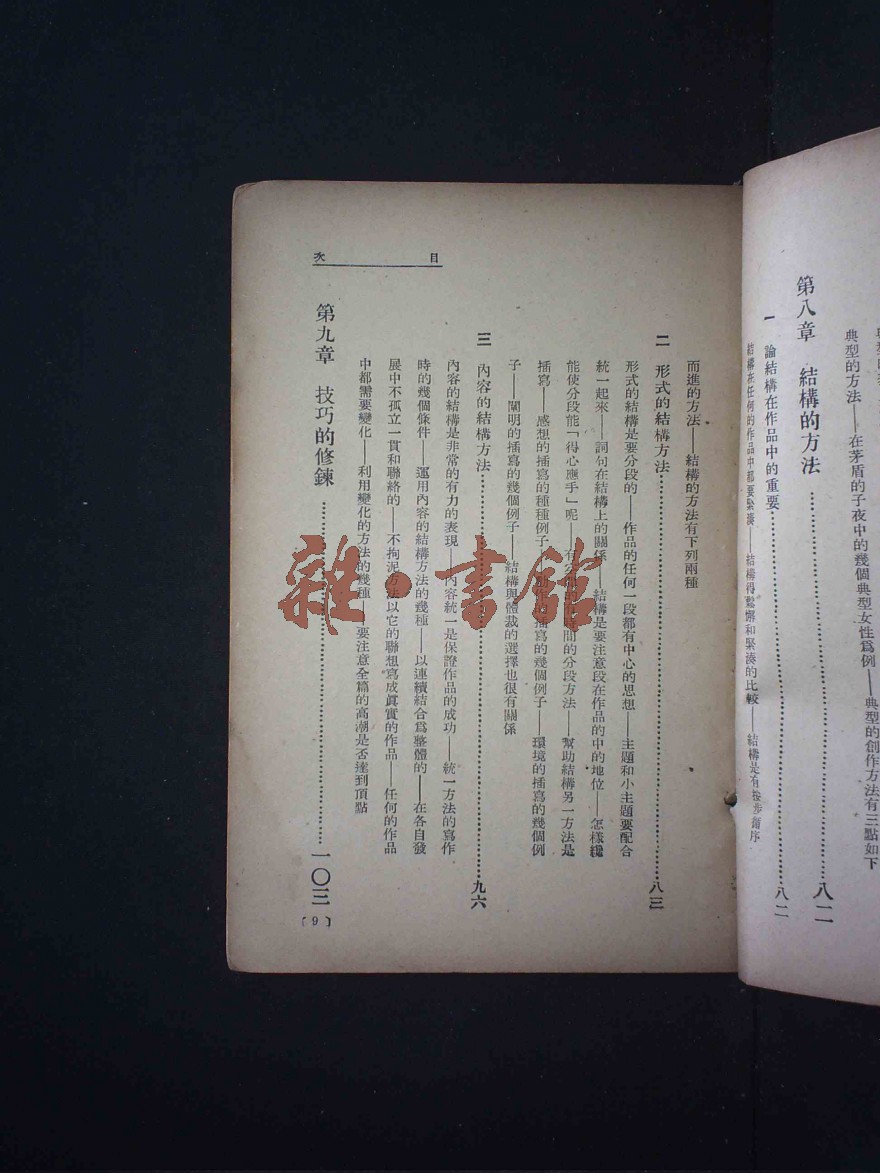 典型的方法——在茅盾的子夜中的幾個典型女性爲例——典型的創作方法有三點如下
第八章 結構的方法…………八二
一 論結構在作品中的重要…………八二
結構在任何的作品中都要緊湊——結構得鬆懈和緊湊的比較——結構是有
而進的方法——結構的方法有下列兩種
二 形式的結構方法…………八三
形式的結構是要分段的——作品的任何一段都有中心的思想——主題和小主題要配合
統一起來——詞句在結構上的關係——結構是要注意段在作品的中的地位——怎樣纔
能使分段能「得心應手」呢——有 間的分段方法——幫助結構另一方法是
插寫——感想的插寫的種種例子 插寫的幾個例子——環境的插寫的幾個例
子——闡明的插寫的幾個例子——結構與體裁的選擇也很有關係
三 內容的結構方法…………九六
內容的結構是非常的有力的表現——內容統一是保證作品的成功——統一方法的寫作
時的幾個條件——運用內容的結構方法的幾種——以連續結合爲整體的——在各自發
展中不孤立一貫和聯絡的——不拘泥方法以它的聯想寫成眞實的作品——任何的作品
中都需要變化——利用變化的方法的幾種——要注意全篇的高潮是否達到頂點
第九章 技巧的修鍊…………一〇三
目次
〔9〕
雜·書館